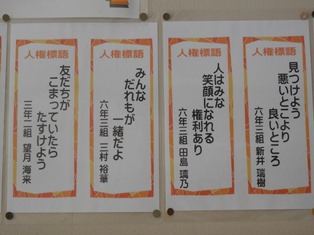 人権標語
見つけよう
悪いとこより
良いところ
六年三組 新井 瑞樹
人権標語
人はみな
笑顔になれる
権利あり
六年三組 田島 璃乃
人権標語
みんな
だれもが
一緒だよ
六年三組 三村 裕華
人権標語
友だちが
こまっていたら
たすけよう
三年二組 望月 海来